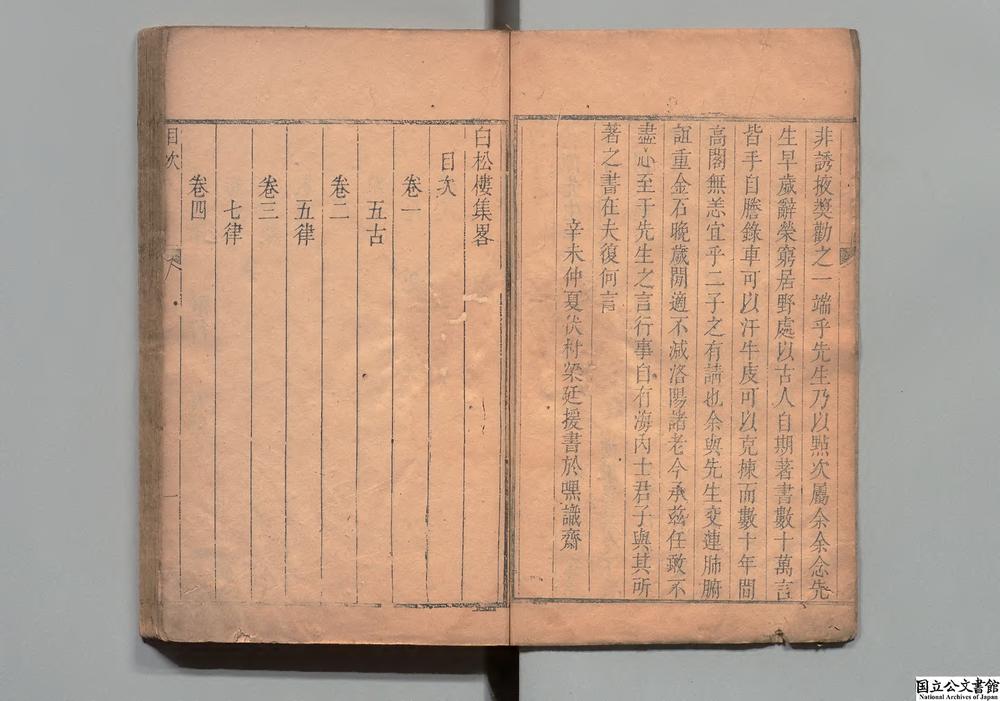 非誘掖奬勸之一端乎先生乃以點次屬余余念先
生早歲辭榮窮居野處以古人自期著書數十萬言
皆手自謄錄車可以汗牛庋可以充棟而數十年間
高閣無恙宜乎二子之有請也余與先生交連肺腑
誼重金石晚歲閒適不減洛陽諸老今承兹任敢不
盡心至于先生之言行事自有海內士君子與其所
著之書在夫復何言
辛未仲夏伏村梁廷援書於嘿識齋
白松樓集畧
目次
卷一
五古
卷二
五律
卷三
七律
卷四
目次
一
国立公文書館
National Archives of Japan